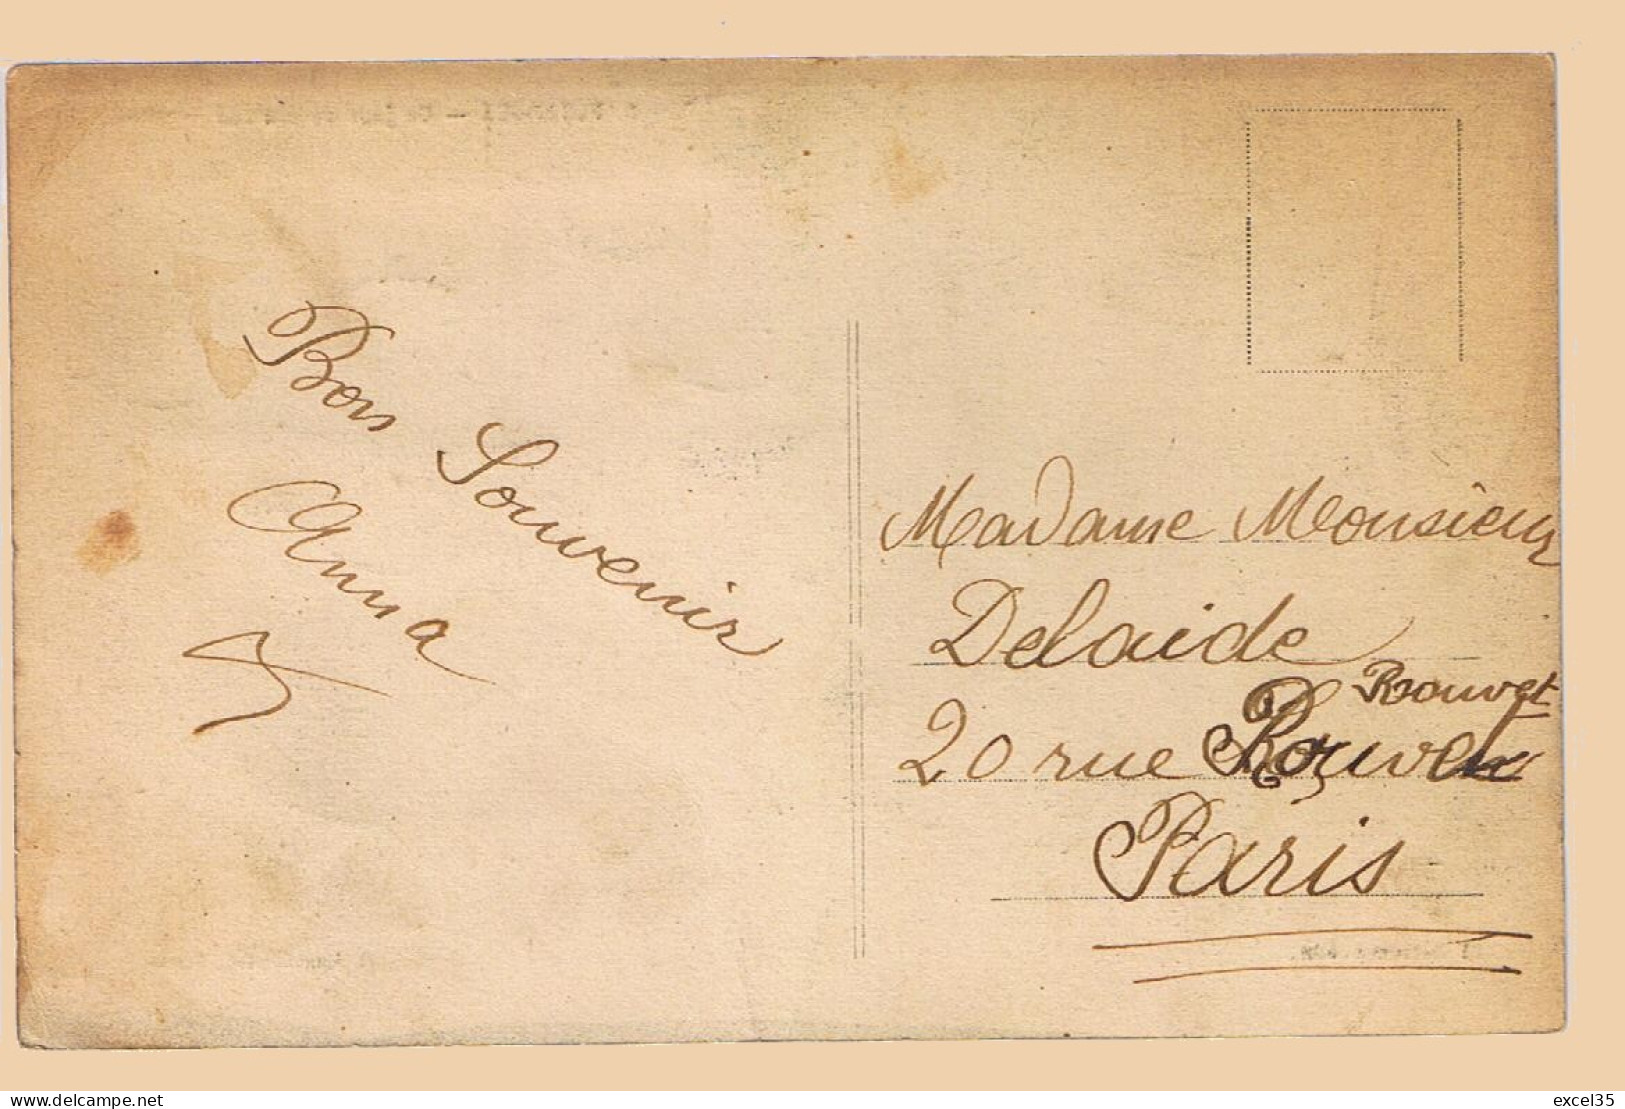 Bon Souvenir
Anna
Madame Monsieur
Delaide
Rouvet
20 rue Rouvet
Paris
delcampe.net
excel35